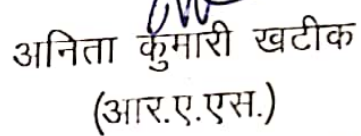 अनिता कुमारी खटीक
(आर.ए.एस.)